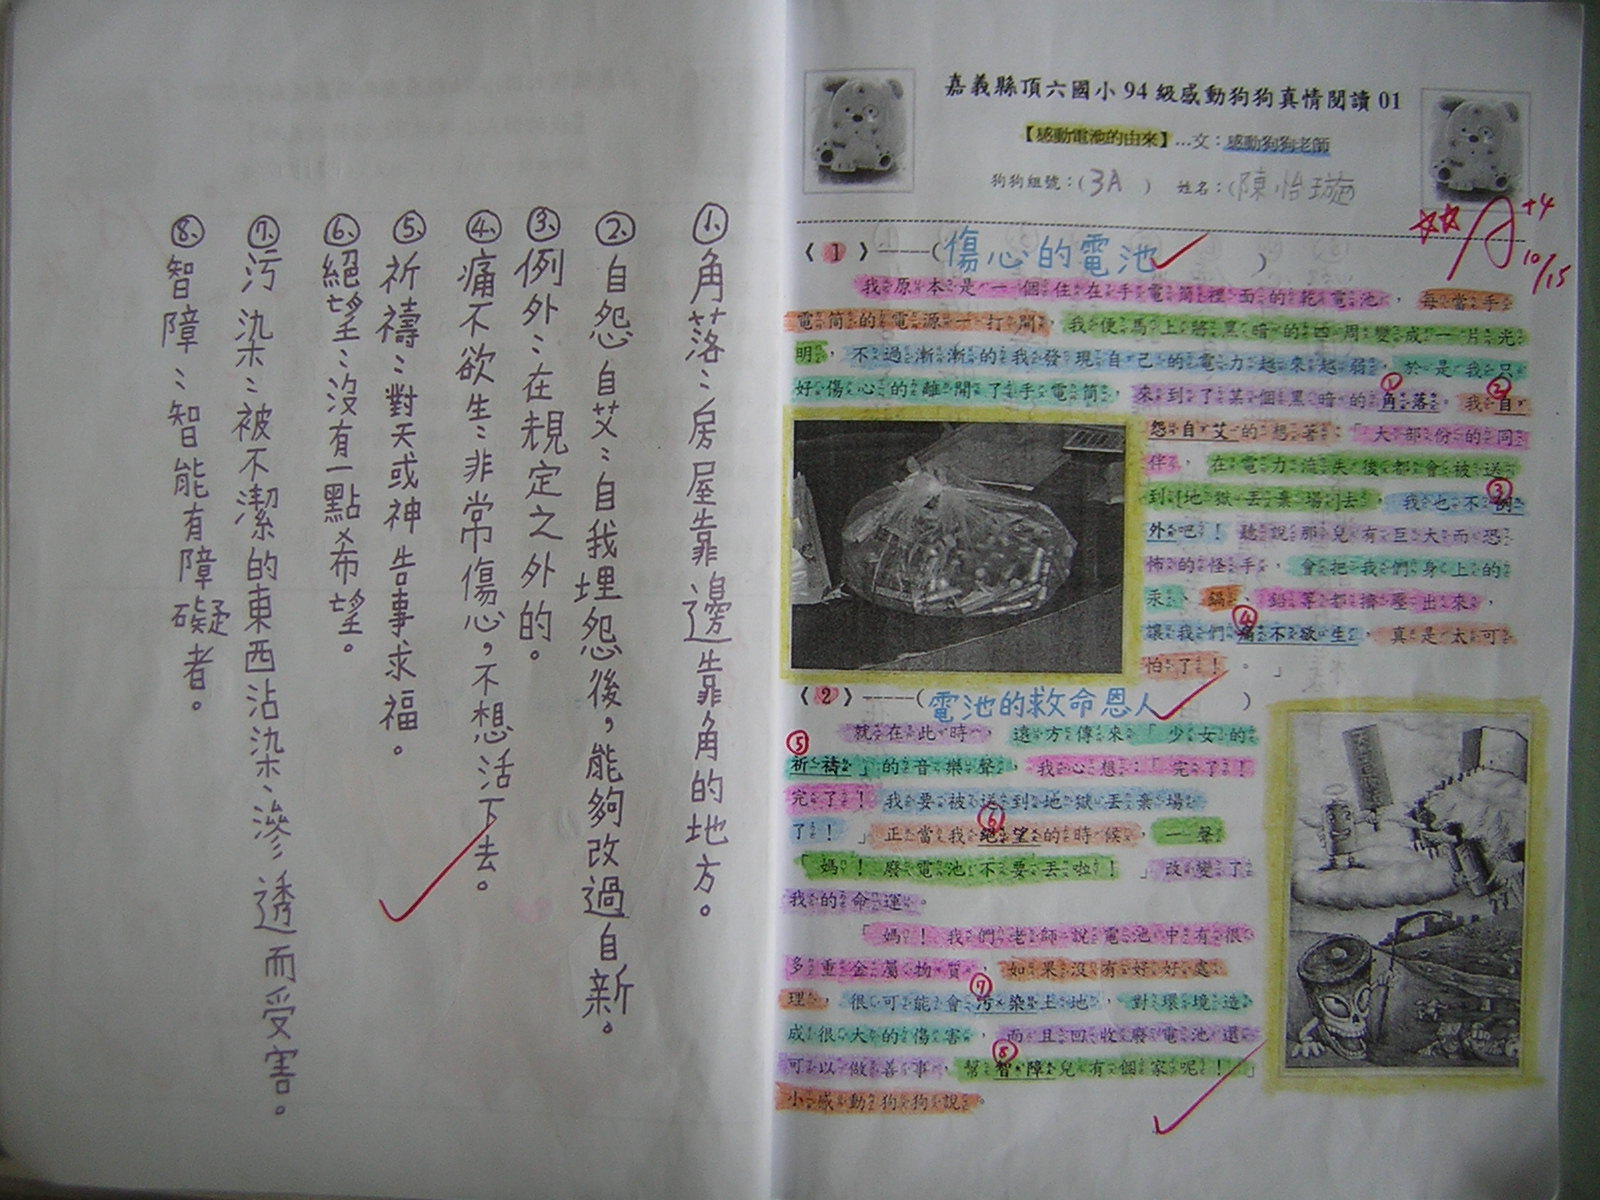 ①角落：房屋靠邊靠角的地方。
②自怨自艾：自我埋怨後，能夠改過自新。
③例外：在規定之外的。
④痛不欲生：非常傷心，不想活下去。
⑤祈禱：對天或神告事求福。
⑥絕望：沒有一點希望。
⑦污染：被不潔的東西沾染、滲透而受害。
⑧智障：智能有障礙者。
嘉義縣頂六國小94級感動狗狗真情閱讀01
【感動電池的由來】…文：感動狗狗老師
狗狗組號：(3A) 姓名：(陳怡璇
+4
10/15
《1》-----(傷心的電池)
我原本是一個住在手電筒裡面的乾電池，每當手
電筒的電源一打開，我便馬上將黑暗的四周變成一片光
明，不過漸漸的我發現自己的電力越來越弱，於是我只
好傷心的離開了手電筒，來到了某個黑暗的①角落。我②自
怨自艾的想著：「大部份的同
伴，在電力流失後都會被送
到[地獄丟棄場]去，我也不③例
外吧！聽說那兒有巨大而恐
怖的怪手，會把我們身上的
汞、鎘、鉛等都擠壓出來，
讓我們④痛不欲生，真是太可
怕了！。」
《2》-----(電池的救命恩人)
就在此時，遠方傳來「少女的
⑤祈禱」的音樂聲，我心想：「完了！
完了！我要被送到地獄丟棄場
了！」正當我⑥絕望的時候，一聲
「媽！廢電池不要丟啦！」改變了
我的命運。
「媽！我們老師說電池中有很
多重金屬物質，如果沒有好好處
理，很可能會⑦污染土地，對環境造
成很大的傷害，而且回收廢電池還
可以做善事，幫⑧智障兒有個家呢！」
小感動狗狗說。